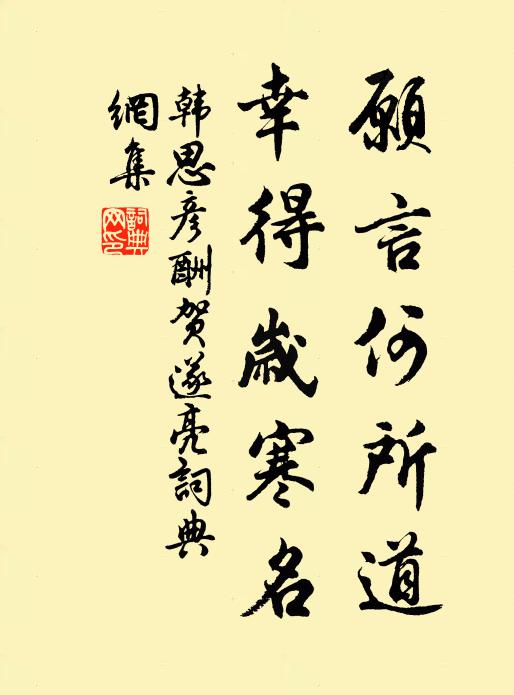 願言何所道
幸得歲寒名
韩思彦酬贺遂亮詞典
網集
詞典
网印